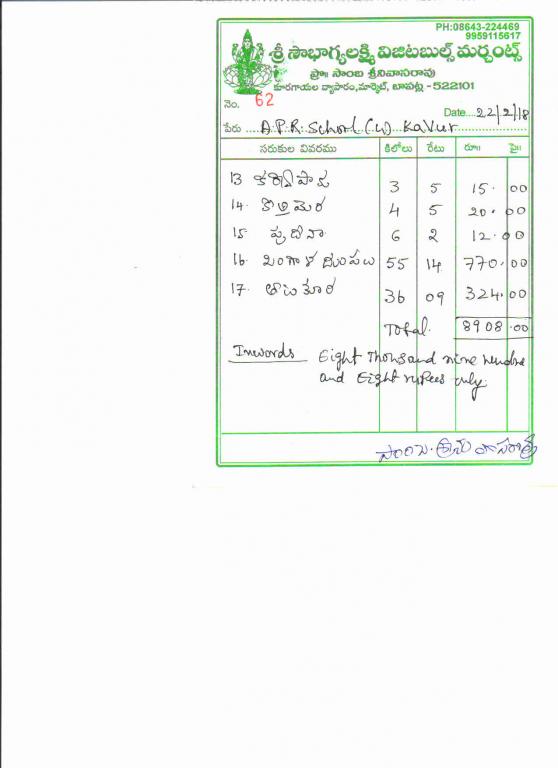 PH:08643-224469
9959115617
శ్రీ సౌభాగ్యలక్ష్మి విజిటబుల్స్ మర్చంట్స్
ప్రొః సాంబ శ్రీనివాసరావు
కూరగాయల వ్యాపారం,మార్కెట్, బాపట్ల - 522101
నెం. 62
Date....22/2/18
పేరు ....A.P.R. School (w) Kavur
సరుకుల వివరము కిలోలు రేటు రూ॥ పై॥
13 కరివేపాకు 3 5 15. 00
14. కొత్తిమెర 4 5 20. 00
15. పుదీనా 6 2 12. 00
16. బంగాళదుంపలు 55 14 770. 00
17. 36 09 324. 00
Total. 8908 .00
Inwords Eight Thousand nine hundre
and Eight rupees only.